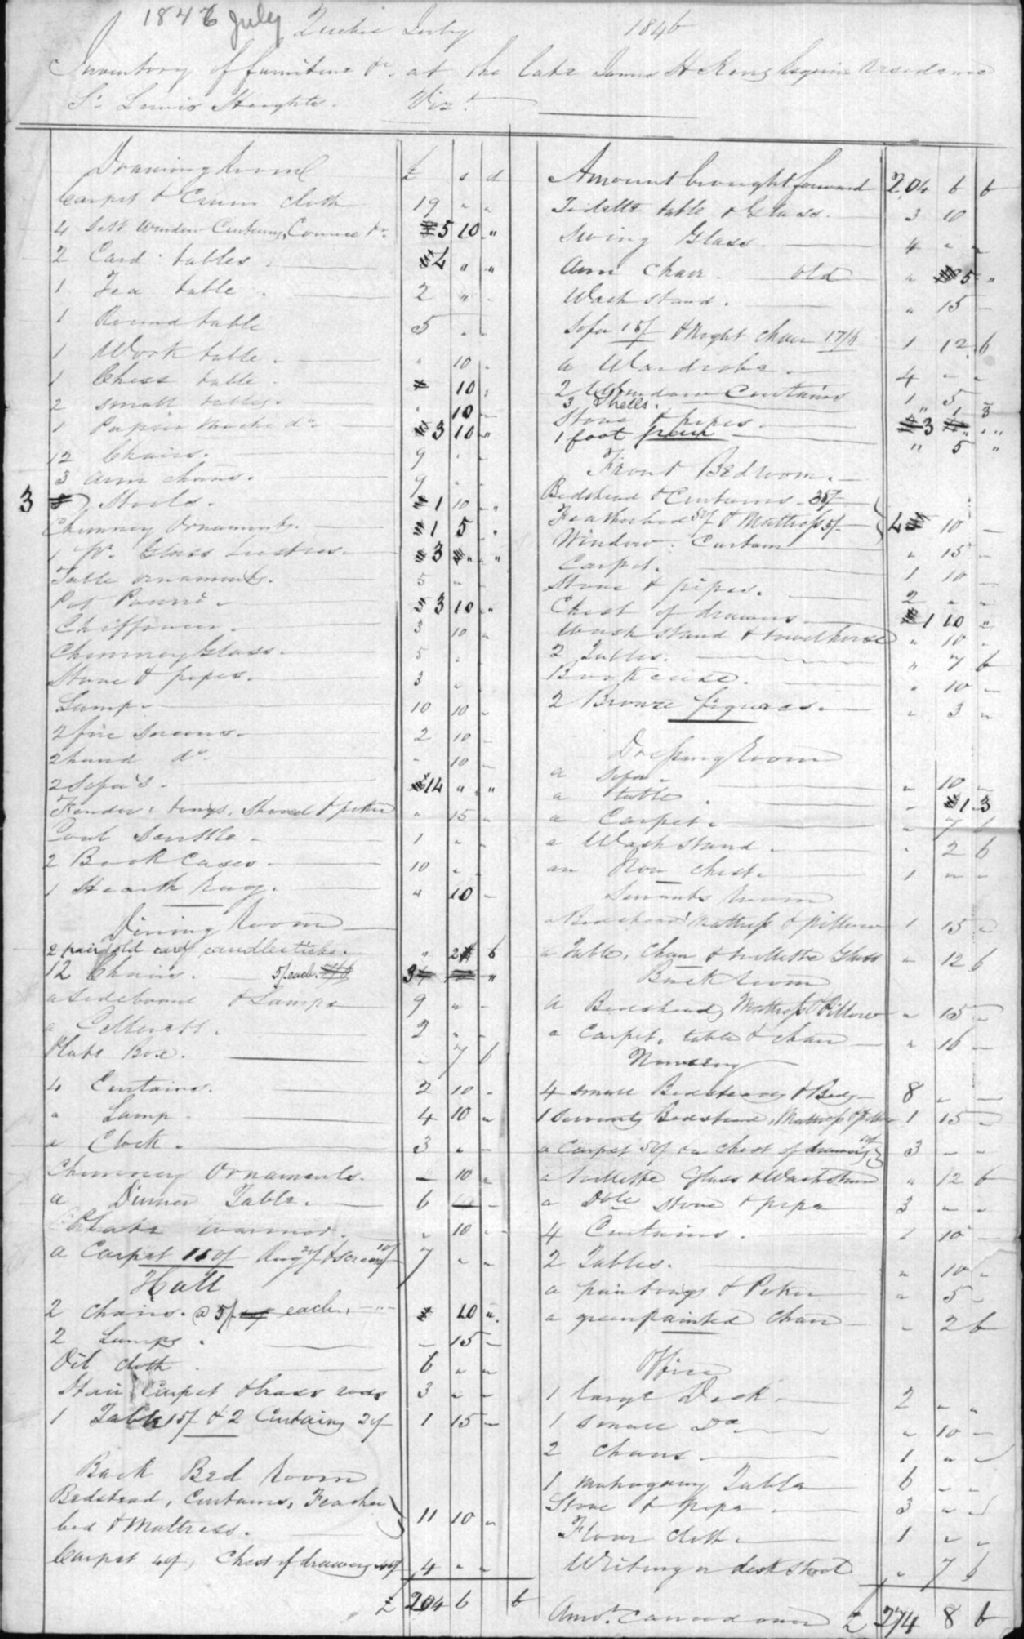 1846 July
Quebec July 1846
Inventory of furniture &c. at the late James H Esquire residence
St. Lewis Heights. Vizt.
Drawing Room £ s d
Carpet & Crum cloth 19 " "
4 Sett Window Curtains, Cornice &c. 5 10 "
2 Card tables 4 " "
1 Tea table 2 " "
1 Round table 5 " "
1 Work table " 10 "
1 Chess table 10
2 small tables " 10 "
1 Papier Mache do 3 10 "
12 Chairs. 9 " "
3 Arm chairs.
3 Stools. 1 10 "
Chimney Ornaments. 1 5 "
1 Pr. Glass Lustres 3 " "
Table ornaments. 5 " "
Pot Pourri 3 10 "
Chiffonier 3 10 "
Chimney Glass. 5 "
Stove & pipes. 3 "
Lamp 10 10 "
2 fire Screens 2 10 "
2 hand do. " 10 "
2 Sofa's. 14 " "
Fender, tongs, Shovel & poker " 15 "
Coal Scuttle 1 " "
2 Book Cases 10 " "
1 Hearth Rug. " 10 "
Dining Room
2 pair old candlesticks. " 2 6
12 Chairs. 5/ each 3 "
a Sideboard & Lamps 9 " "
a Celleret. 2 " "
Plate Box. " 7 6
4 Curtains. 2 10 "
a Lamp 4 10 "
a Clock. 3 " "
Chimney Ornaments. " 10 "
a Dinner Table. 6
Plate warmer. " 10 "
a Carpet Rug & screen 7 " "
Hall
2 Chairs. @ 5/ each, 10 "
2 Lamps. " 15 "
Oil cloth 6 " "
Stair Carpet & brass rods 3 " "
1 Table 15/ & 2 Curtains 20/ 1 15 "
Back Bed Room
Bedstead, Curtains, Feather
bed & Mattress. 11 10 "
Carpet 40/, Chest of drawers 40/ 4 " "
£ 204 6 6
Amount brought forward 204 6 6
Toilette table & Glass. 3 10
Swing Glass 4 " "
Arm chair old " 5 "
Wash stand. " 15 "
Sofa 15/ & Night chair 17/6 1 12 6
a Wardrobe. 4 " "
2 Window Curtains 1 5 "
3 Shells. " 1 3
Stove & pipes. 3 " "
1 foot " 5 "
Front Bedroom.
Bedstead & Curtains 35/
Featherbed & Mattress 5/ 4 10 "
Window Curtain " 15 "
Carpet. 1 10 "
Stove & pipes. 2 " "
Chest of drawers. 1 10 "
Wash stand & towelhorse " 10 "
2 Tables. " 7 6
Bookcase. " 10 "
2 Bronze figures. " 3 "
Dressing Room
a Sofa. " 10 "
a table. " 1 3
a Carpet. " 7 6
a Wash stand. " 2 6
an Iron chest. 1 " "
Servants room
a Bedstead Mattress & pillow 1 15 "
a Table, Chair & toilette Glass " 12 6
Back room
a Bedstead, Mattress & Pillow " 15 "
a Carpet, table & chair " 16 "
Nursery
4 small Bedsteads & Bedg 8 " "
1 Servants Bedstead, Mattress & pillow 1 15 "
a Carpet 50/ a chest of drawers 10/ 3 " "
a Toilette Glass & Washstand " 12 6
a Dble Stove & pipe 3 " "
4 Curtains. 1 10 "
2 Tables. " 10 "
a paintings & Poker " 5 "
a green painted Chair " 2 6
Office
1 large Desk 2 " "
1 small Do " 10 "
2 chairs 1 " "
1 mahogany Table 6 " "
Stove & pipe 3 " "
Floor cloth 1 " "
Writing or desk stool " 7 6
Amot. carried over £ 274 8 6